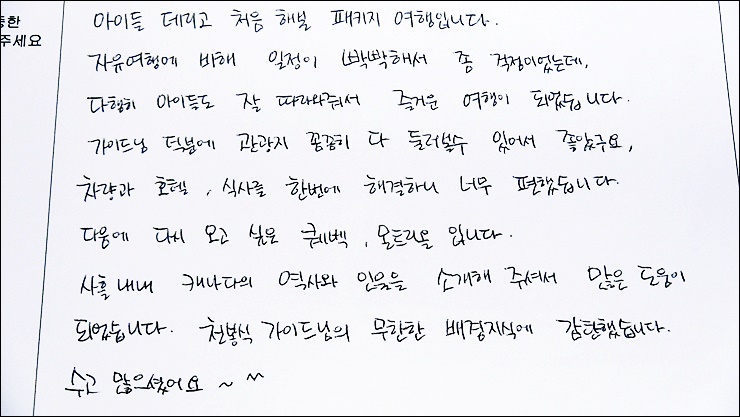 통한
주세요
아이들 데리고 처음 해본 패키지 여행입니다.
자유여행에 비해 일정이 빡빡해서 좀 걱정이었는데,
다행히 아이들도 잘 따라와줘서 즐거운 여행이 되었습니다.
가이드님 덕분에 관광지 꼼꼼히 다 둘러볼수 있어서 좋았구요,
차량과 호텔, 식사를 한번에 해결하니 너무 편했습니다.
다음에 다시 오고 싶은 퀘벡, 몬트리올 입니다.
사흘내내 캐나다의 역사와 인물을 소개해 주셔서 많은 도움이
되었습니다. 천봉식 가이드님의 무한한 배경지식에 감탄했습니다.
수고 많으셨어요 ~ ^^